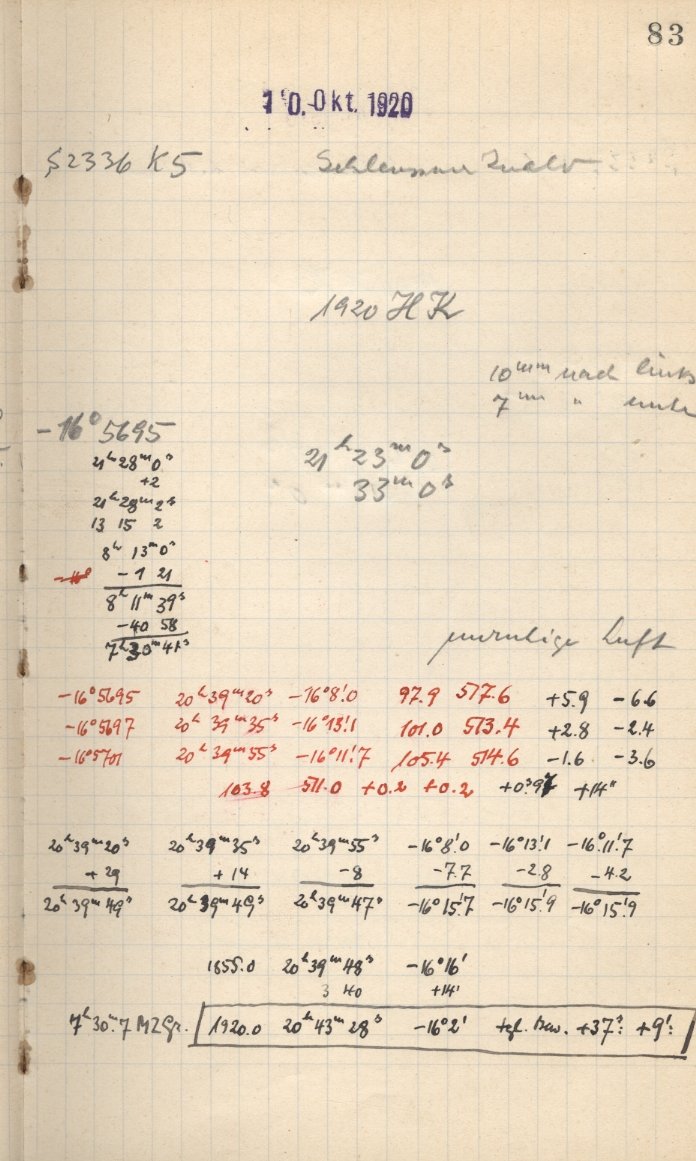 83
10. Okt. 1920
S2336 K5
1920 HK
10ᵐᵐ nach links
7ᵐᵐ "
-16° 5695
21ʰ28ᵐ0ˢ
+2
21ʰ28ᵐ2ˢ
13 15 2
8ʰ 13ᵐ0ˢ
-1 21
8ʰ 11ᵐ 39ˢ
-40 58
7ʰ30ᵐ41ˢ
21ʰ23ᵐ0ˢ
33ᵐ0ˢ
unruhige Luft
-16° 5695 20ʰ39ᵐ20ˢ -16°8!0 97.9 517.6 +5.9 -6.6
-16° 5697 20ʰ39ᵐ35ˢ -16°13!1 101.0 513.4 +2.8 -2.4
-16° 5701 20ʰ39ᵐ55ˢ -16°11!7 105.4 514.6 -1.6 -3.6
103.8 511.0 +0.2 +0.2 +0ˢ97 +14"
20ʰ39ᵐ20ˢ 20ʰ39ᵐ35ˢ 20ʰ39ᵐ55ˢ -16°8!0 -16°13!1 -16°11!7
+29 +14 -8 -7.7 -2.8 -4.2
20ʰ39ᵐ49ˢ 20ʰ39ᵐ49ˢ 20ʰ39ᵐ47ˢ -16°15!7 -16°15!9 -16°15!9
1855.0 20ʰ39ᵐ48ˢ -16°16'
3 40 +14'
7ʰ30ᵐ.7 MZGr. 1920.0 20ʰ43ᵐ28ˢ -16°2' tgl. Bew. +37ˢ: +9':